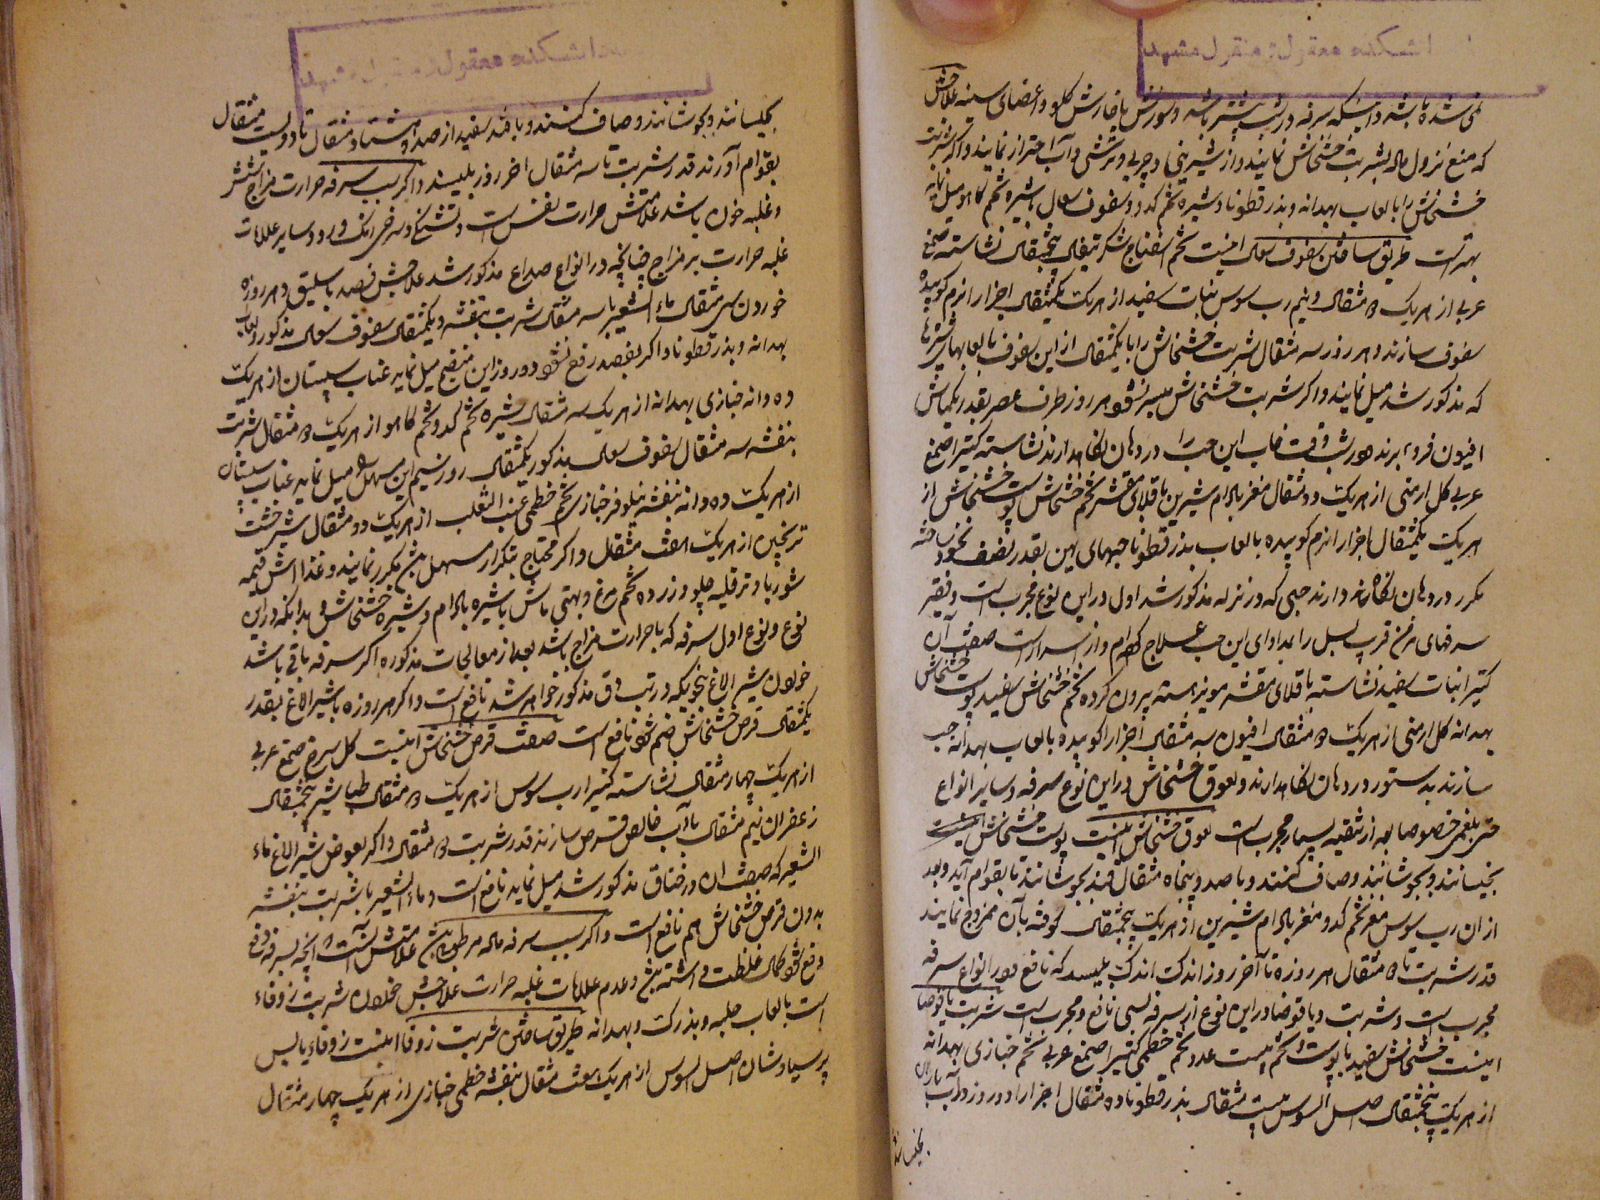 دانشکده معقول و منقول مشهد
که منع نزول ماده بشربت خشخاش نمایند و از شیرینی و چربی و ترشی و آب احتراز نمایند و اگر شربت
خشخاش را با لعاب بهدانه و بذر قطونا و شیره تخم کدو و سفوف سعال و شیره تخم کاهو میل نمایند
بهتر است طریق ساختن سفوف سعال اینست تخم اسفناج شکر تیغال پنجمثقال نشاسته صمغ
عربی از هریک ده مثقال و نیم رب سوس نبات سفید از هریک یکمثقال اجزا را نرم کوبیده
سفوف سازند و هر روز سه مثقال شربت خشخاش را با یکمثقال از این سفوف با لعابها و شیرها
که مذکور شد میل نمایند و اگر شربت خشخاش میسر نشود هر روز طرف عصر بقدر یکماش
افیون فرو برند و هر شب وقت خواب این حب را در دهان نگاهدارند نشاسته کتیرا صمغ
عربی گل ارمنی از هریک دو مثقال مغز بادام شیرین باقلای مقشر تخم خشخاش پوست خشخاش از
هریک یکمثقال اجزا را نرم کوبیده با لعاب بذر قطونا حبهای پهن بقدر نصف نخود ساخته
مکرر در دهان نگاه دارند حبی که در نزله مذکور شد اول در این نوع مجرب است و فقیر
سرفهای مزمن قریب بسل را مداوای این حب علاج کرده‌ام و از اسرار است صفت آن
کتیرا نبات سفید نشاسته باقلای مقشر مویز هسته بیرون کرده تخم خشخاش سفید پوست خشخاش
بهدانه گل ارمنی از هریک ده مثقال افیون سه مثقال اجزا را کوبیده با لعاب بهدانه حب
سازند بدستور در دهان نگاهدارند و لعوق خشخاش در این نوع سرفه و سایر انواع
حتی بلغمی خصوصا بعد از تنقیه بسیار مجرب است لعوق خشخاش اینست پوست خشخاش بیست
بخیسانند و بجوشانند و صاف کنند و با صد و پنجاه مثقال قند بجوشانند تا بقوام آید و بعد
از ان رب سوس مغز تخم کدو مغز بادام شیرین از هریک پنجمثقال کوفته بآن ممزوج نمایند
قدر شربت تا ده مثقال هر روزه تا آخر روز اندک اندک بلیسد که نافع در انواع سرفه
مجرب است و شربت دیاقوضا در این نوع از سرفه بسی نافع و مجرب است شربت دیاقوضا
اینست خشخاش سفید با پوست و تخم بیست عدد تخم خطمی کتیرا صمغ عربی تخم خبازی بهدانه
از هریک پنجمثقال اصل السوس بیست مثقال بذر قطونا ده مثقال اجزا را دو روز در آب باران
بخیسانند
دانشکده معقول و منقول مشهد
بخیسانند و بجوشانند و صاف کنند و با قند سفید از صد و هشتاد مثقال تا دویست مثقال
بقوام آورند قدر شربت تا سه مثقال اخر روز بلیسند و اگر سبب سرفه حرارت مزاج شش
و غلبه خون باشد علامتش حرارت نفس است و تشنگی و سرخی رنک و رو و سایر علامات
غلبه حرارت بر مزاج چنانچه در انواع صداع مذکور شد علاجش فصد باسلیق و هر روزه
خوردن سی مثقال ماء الشعیر با سه مثقال شربت بنفشه و یکمثقال سفوف سعال مذکور و لعاب
بهدانه و بذر قطونا و اگر بفصد رفع نشود دو روز این منضج میل نماید عناب سپستان از هریک
ده دانه خبازی بهدانه از هریک سه مثقال شیره تخم کدو تخم کاهو از هریک ده مثقال شربت
بنفشه سه مثقال سفوف سعال مذکور یکمثقال روز سیم این مسهل را میل نماید عناب سپستان
از هریک ده دانه بنفشه نیلوفر خبازی تخم خطمی عنب الثعلب از هریک دو مثقال شیرخشت
ترنجبین از هریک هفت مثقال و اگر محتاج بتکرار مسهل باشد مکرر نمایند و غذا اش قیمه
شوربا و ترقلیه چلو و زرده تخم مرغ و بهتی ماش با شیره بادام و شیره خشخاش و بدانکه در این
نوع و نوع اول سرفه که با حرارت مزاج باشد بعد از معالجات مذکوره اگر سرفه باقی باشد
خوردن شیر الاغ بنحویکه در تب دق مذکور خواهد شد نافع است و اگر هر روزه با شیر الاغ بقدر
یکمثقال قرص خشخاش ضم شود نافع است صفت قرص خشخاش اینست گل سرخ صمغ عربی
از هریک چهار مثقال نشاسته کتیرا رب سوس از هریک ده مثقال طباشیر پنجمثقال
زعفران نیم مثقال با آب خالص قرص سازند قدر شربت دو مثقال و اگر بعوض شیر الاغ ماء
الشعیر که صفت ان در خناق مذکور شد میل نماید نافع است و ماء الشعیر با شربت بنفشه
بدون قرص خشخاش هم نافع است و اگر سبب سرفه ماده مرطوبی باشد علامتش آنست که آنچه بسرفه دفع
دفع شود کمال غلظت داشته باشد و عدم علامات غلبه حرارت علاجش خوردن شربت زوفاء
است با لعاب حلبه و بذرک و بهدانه طریق ساختن شربت زوفا اینست زوفاء یابس
پرسیاوشان اصل السوس از هریک هفت مثقال بنفشه خطمی خبازی از هریک چهار مثقال